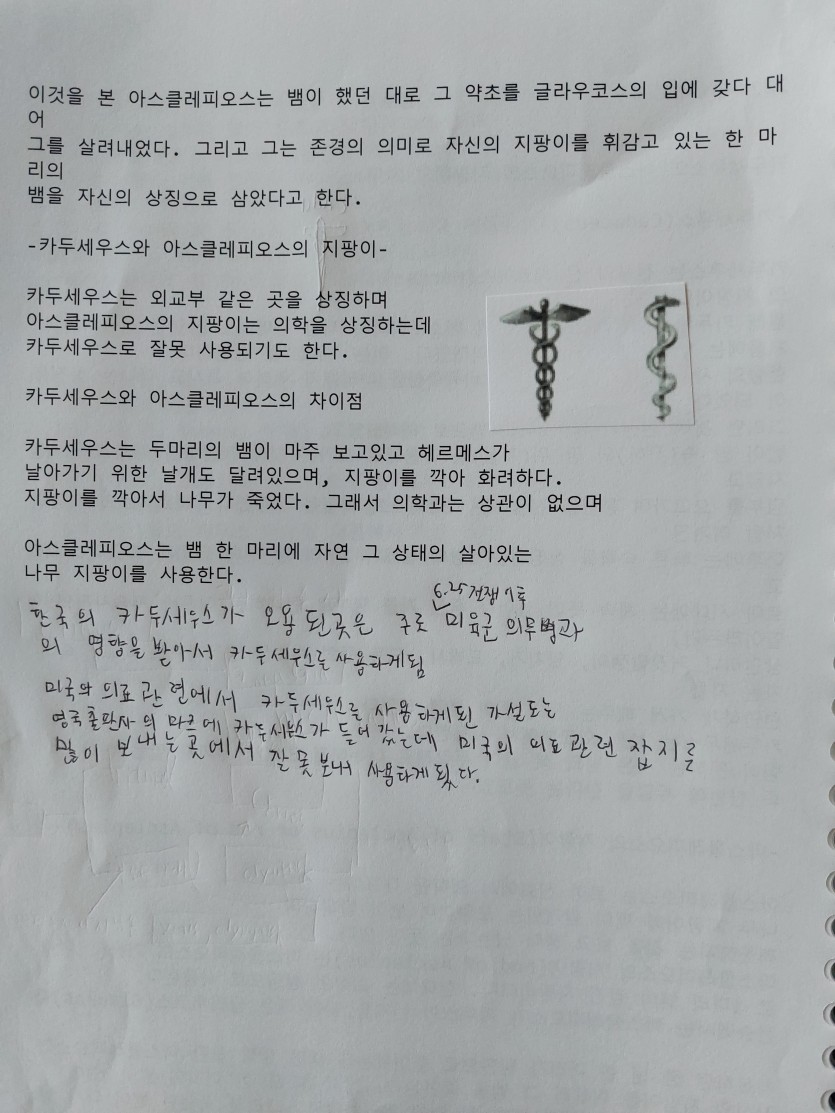 이것을 본 아스클레피오스는 뱀이 했던 대로 그 약초를 글라우코스의 입에 갖다 대
어
그를 살려내었다. 그리고 그는 존경의 의미로 자신의 지팡이를 휘감고 있는 한 마
리의
뱀을 자신의 상징으로 삼았다고 한다.
-카두세우스와 아스클레피오스의 지팡이-
카두세우스는 외교부 같은 곳을 상징하며
아스클레피오스의 지팡이는 의학을 상징하는데
카두세우스로 잘못 사용되기도 한다.
카두세우스와 아스클레피오스의 차이점
카두세우스는 두마리의 뱀이 마주 보고있고 헤르메스가
날아가기 위한 날개도 달려있으며, 지팡이를 깍아 화려하다.
지팡이를 깍아서 나무가 죽었다. 그래서 의학과는 상관이 없으며
아스클레피오스는 뱀 한 마리에 자연 그 상태의 살아있는
나무 지팡이를 사용한다.
6.25전쟁 이후
한국의 카두세우스가 오용 된곳은 주로 미육군 의무병과
의 영향을 받아서 카두세우스를 사용하게됨
미국의 의료 관련에서 카두세우스를 사용하게된 가설로는
영국출판사의 마크에 카두세우스가 들어 갔는데 미국의 의료관련 잡지를
많이 보내는곳에서 잘못보내 사용하게 됬다.